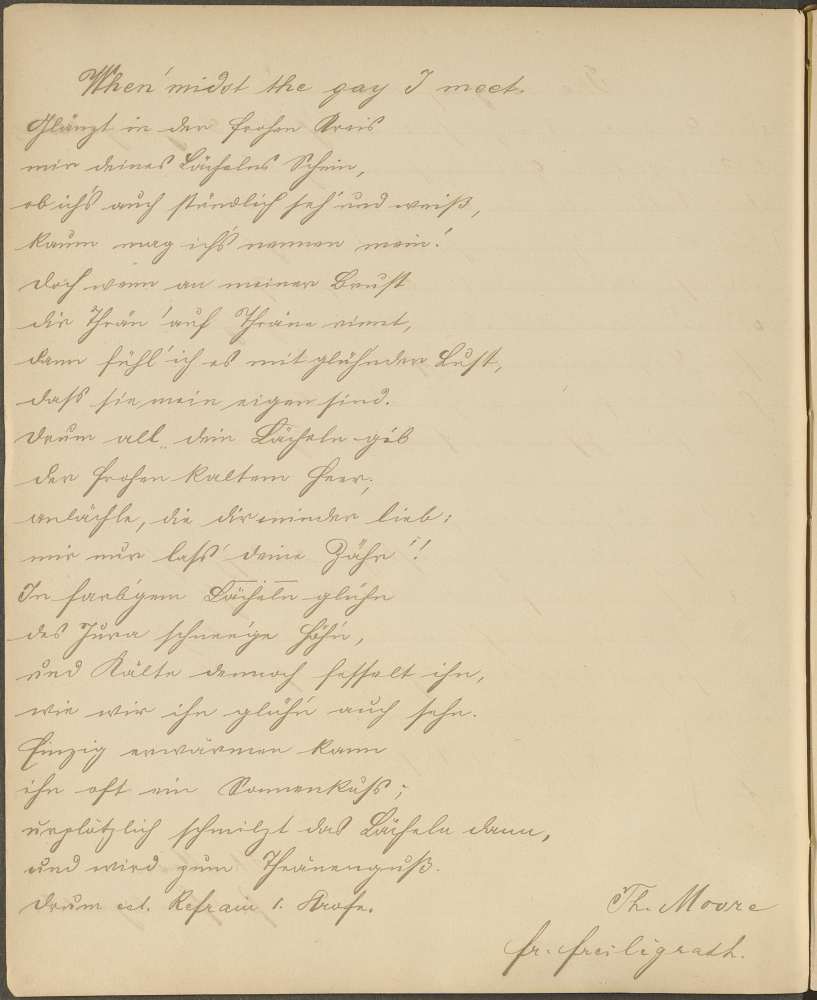 When 'midst the gay I meet.
Glänzt in der frohen Kreis
mir deines Lächelns Schein,
ob ich's auch stündlich seh' und weiß,
kaum mag ich's nennen mein!
Doch wenn an meiner Brust
dir Thrän' auf Thräne rinnt,
dann fühl' ich es mit glüh'nder Lust,
dass sie mein eigen sind.
Drum all dein Lächeln gib
der frohen kaltem Heer;
anlächle, die dir minder lieb:
mir nur lass' deine Zähr'!
In farb'gem Lächeln glühn
des Jura schneeige Höh'n,
und Kälte dennoch fesselt ihn,
wie wir ihn glüh'n auch sehn.
Einzig erwärmen kann
ihn oft ein Sonnenkuss;
urplötzlich schmilzt das Lächeln dann,
und wird zum Thränenguß.
Drum ect. Refrain 1. Strofe.
Th. Moore
fr. freiligrath.